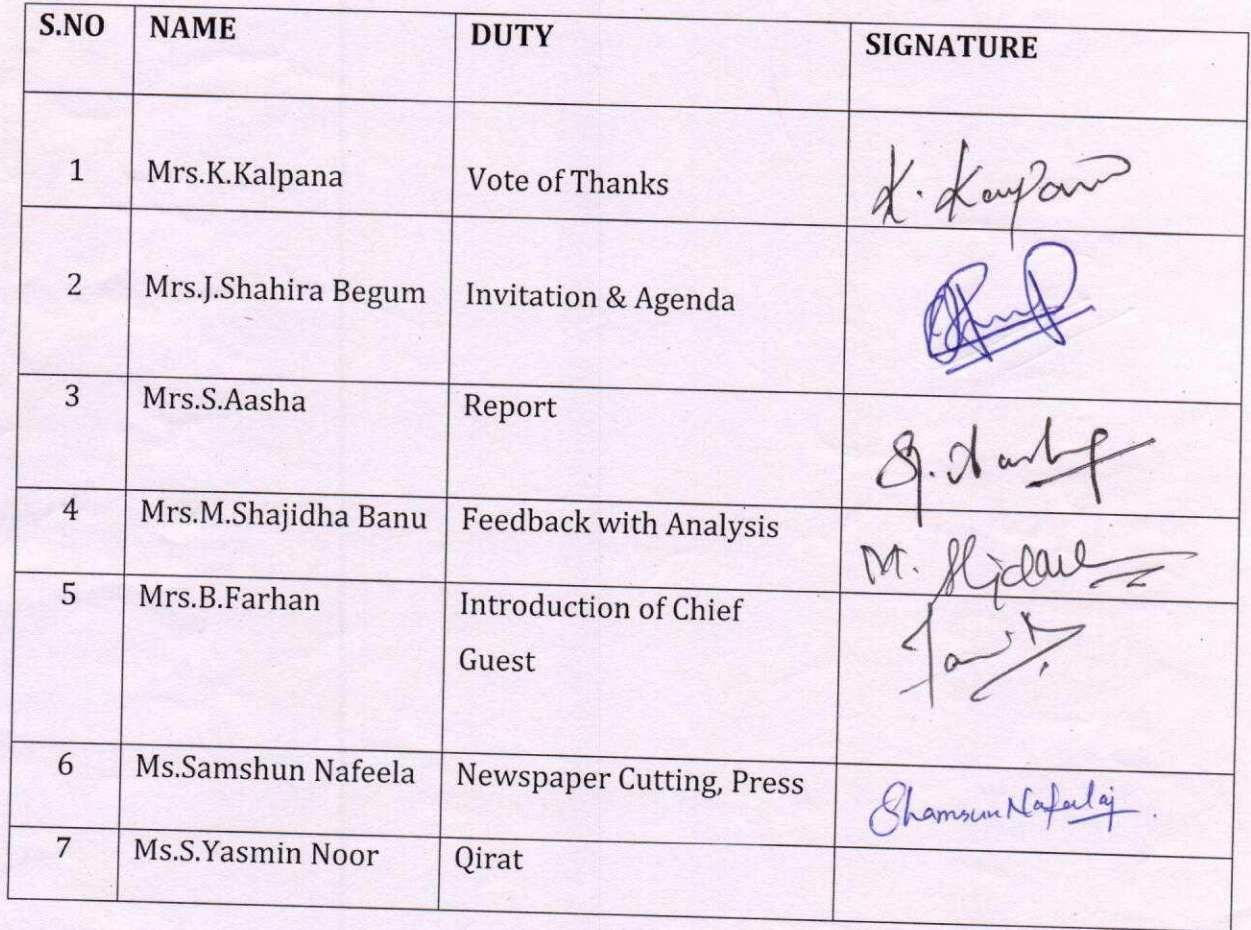 S.NO NAME DUTY SIGNATURE
1 Mrs.K.Kalpana Vote of Thanks K. Kalpana
2 Mrs.J.Shahira Begum Invitation & Agenda
3 Mrs.S.Aasha Report S. Aasha
4 Mrs.M.Shajidha Banu Feedback with Analysis M.
5 Mrs.B.Farhan Introduction of Chief
Guest
6 Ms.Samshun Nafeela Newspaper Cutting, Press Shamsun Nafeela
7 Ms.S.Yasmin Noor Qirat